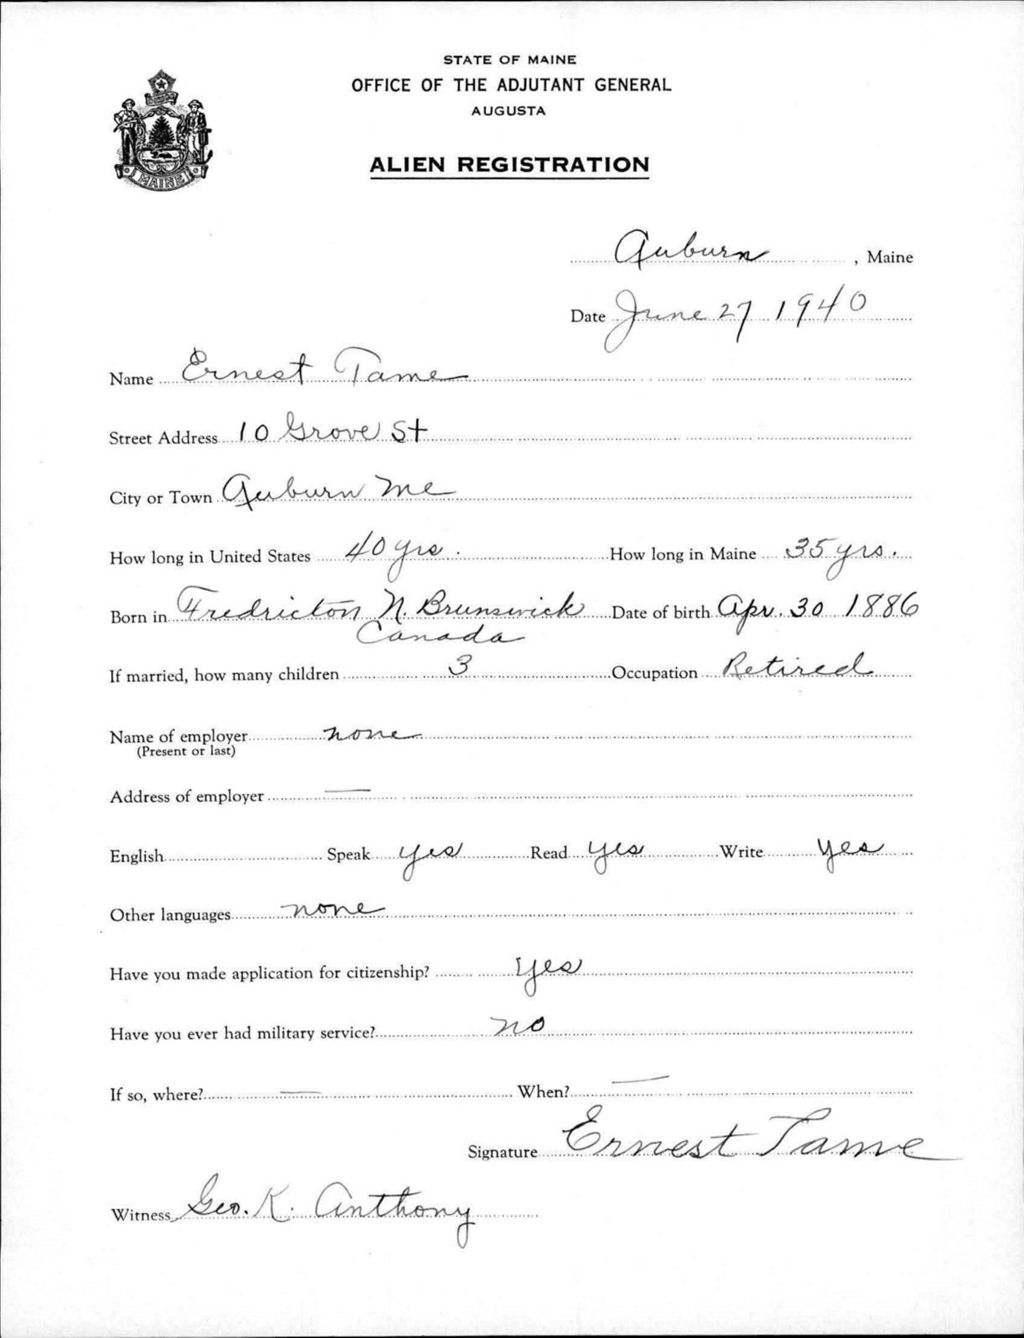 STATE OF MAINE
OFFICE OF THE ADJUTANT GENERAL
AUGUSTA
ALIEN REGISTRATION
MAINE
Auburn, Maine
Date June 27 1940
Name Ernest Tame
Street Address 10 Grove St
City or Town Auburn Me
How long in United States 40 yrs. How long in Maine 35 yrs.
Born in Fredricton N. Brunswick Date of birth Apr. 30 1886
Canada
If married, how many children 3 Occupation Retired
Name of employer none
(Present or last)
Address of employer —
English Speak yes Read yes Write yes
Other languages none
Have you made application for citizenship? Yes
Have you ever had military service? no
If so, where? — When? —
Signature Ernest Tame
Witness Geo. K. Anthony